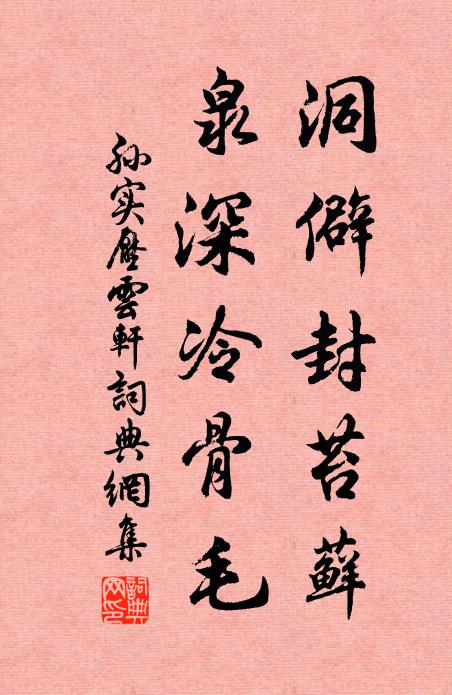 洞僻封苔蘚
泉深冷骨毛
孙实應雲軒詞典網集
詞典网印